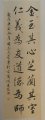 金玉其心芝蘭其室
仁義為友道德為師